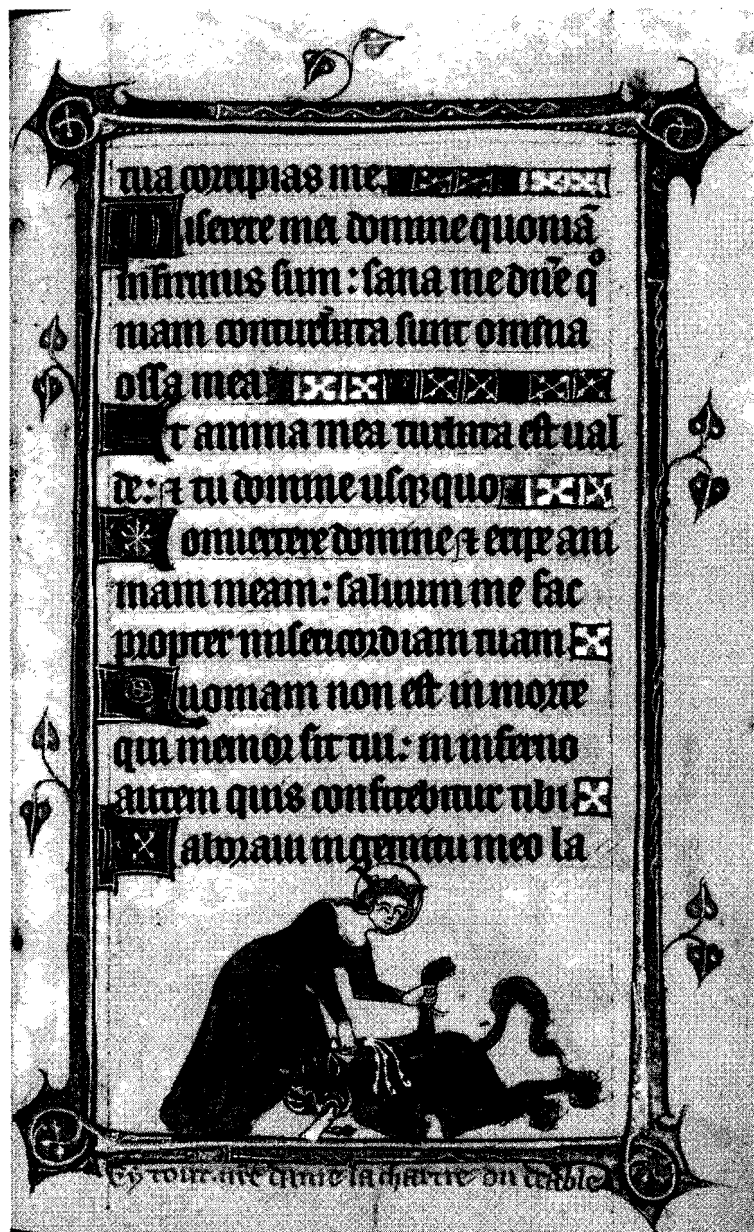 tua corripias me.
Miserere mei domine quoniā
infirmus sum : sana me dn̄e qͦ
niam conturbata sunt omnia
ossa mea.
Et anima mea turbata est ual
de : ⁊ tu domine usqꝫ quo
Conuertere domine ⁊ eripe ani
mam meam : saluum me fac
propter misericordiam tuam
Quoniam non est in morte
qui memor sit tui : in inferno
autem quis confitebitur tibi
Laboraui in gemitu meo la
cy tout nre dame la chartre du deable